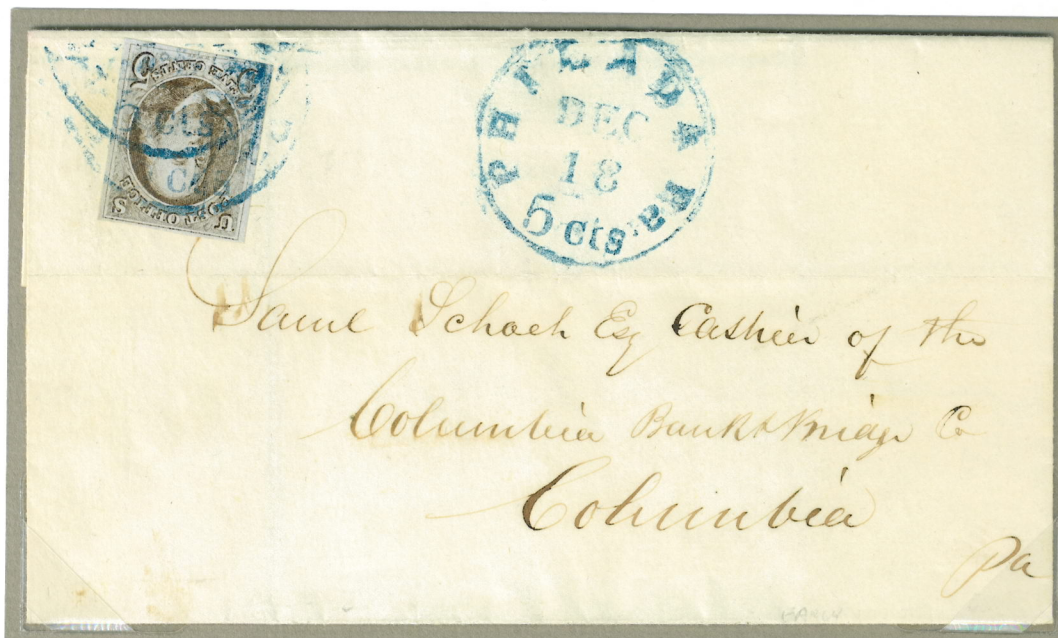 POST OFFICE
FIVE CENTS
U S
5 5
cts
PHILADA Pa.
DEC
18
5 cts
Saml Schoch Esq Cashier of the
Columbia Bank & Bridge Co
Columbia
Pa